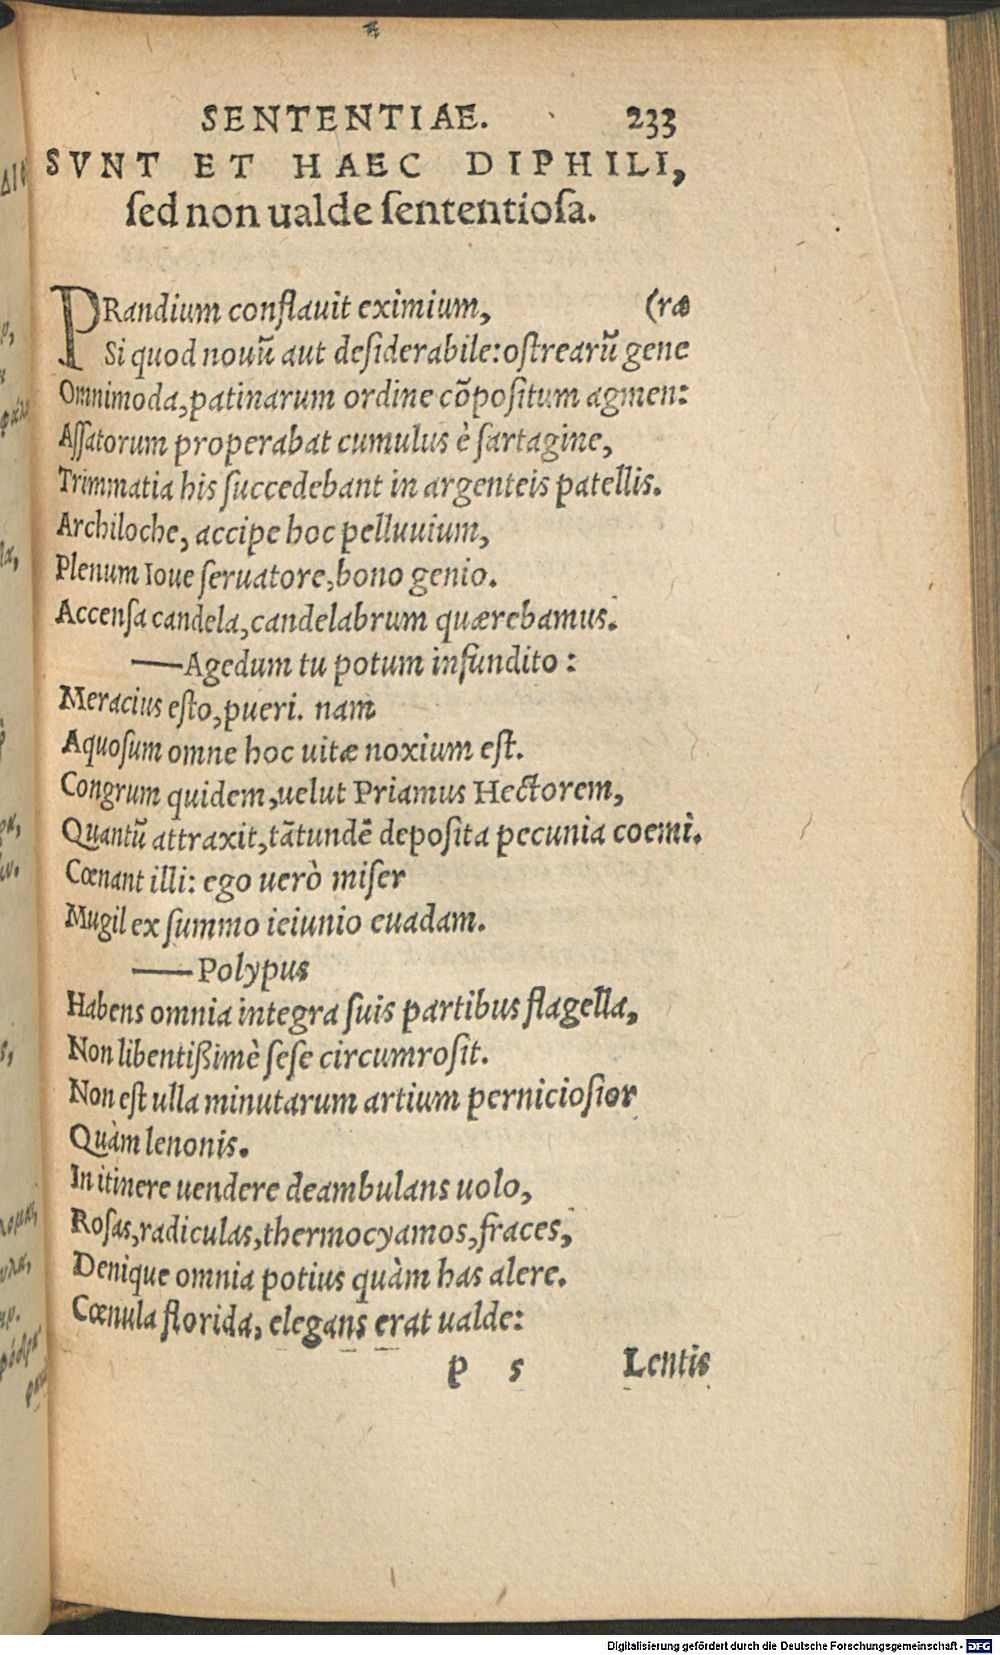 SENTENTIAE. 233
SVNT ET HAEC DIPHILI,
ſed non ualde ſententioſa.
PRandium conflauit eximium, (ræ
Si quod nouũ aut deſiderabile: oſtrearũ gene
Omnimoda, patinarum ordine cõpoſitum agmen:
Aſſatorum properabat cumulus è ſartagine,
Trimmatia his ſuccedebant in argenteis patellis.
Archiloche, accipe hoc pelluuium,
Plenum Ioue ſeruatore, bono genio.
Accenſa candela, candelabrum quærebamus.
—Agedum tu potum infundito:
Meracius eſto, pueri. nam
Aquoſum omne hoc uitæ noxium eſt.
Congrum quidem, uelut Priamus Hectorem,
Quantũ attraxit, tãtundẽ depoſita pecunia coemi.
Cœnant illi: ego uerò miſer
Mugil ex ſummo ieiunio euadam.
—Polypus
Habens omnia integra ſuis partibus flagella,
Non libentißimè ſeſe circumroſit.
Non eſt ulla minutarum artium pernicioſior
Quàm lenonis.
In itinere uendere deambulans uolo,
Roſas, radiculas, thermocyamos, fraces,
Denique omnia potius quàm has alere.
Cœnula florida, elegans erat ualde:
P 5 Lentis
Digitalisierung gefördert durch die Deutsche Forschungsgemeinschaft - DFG